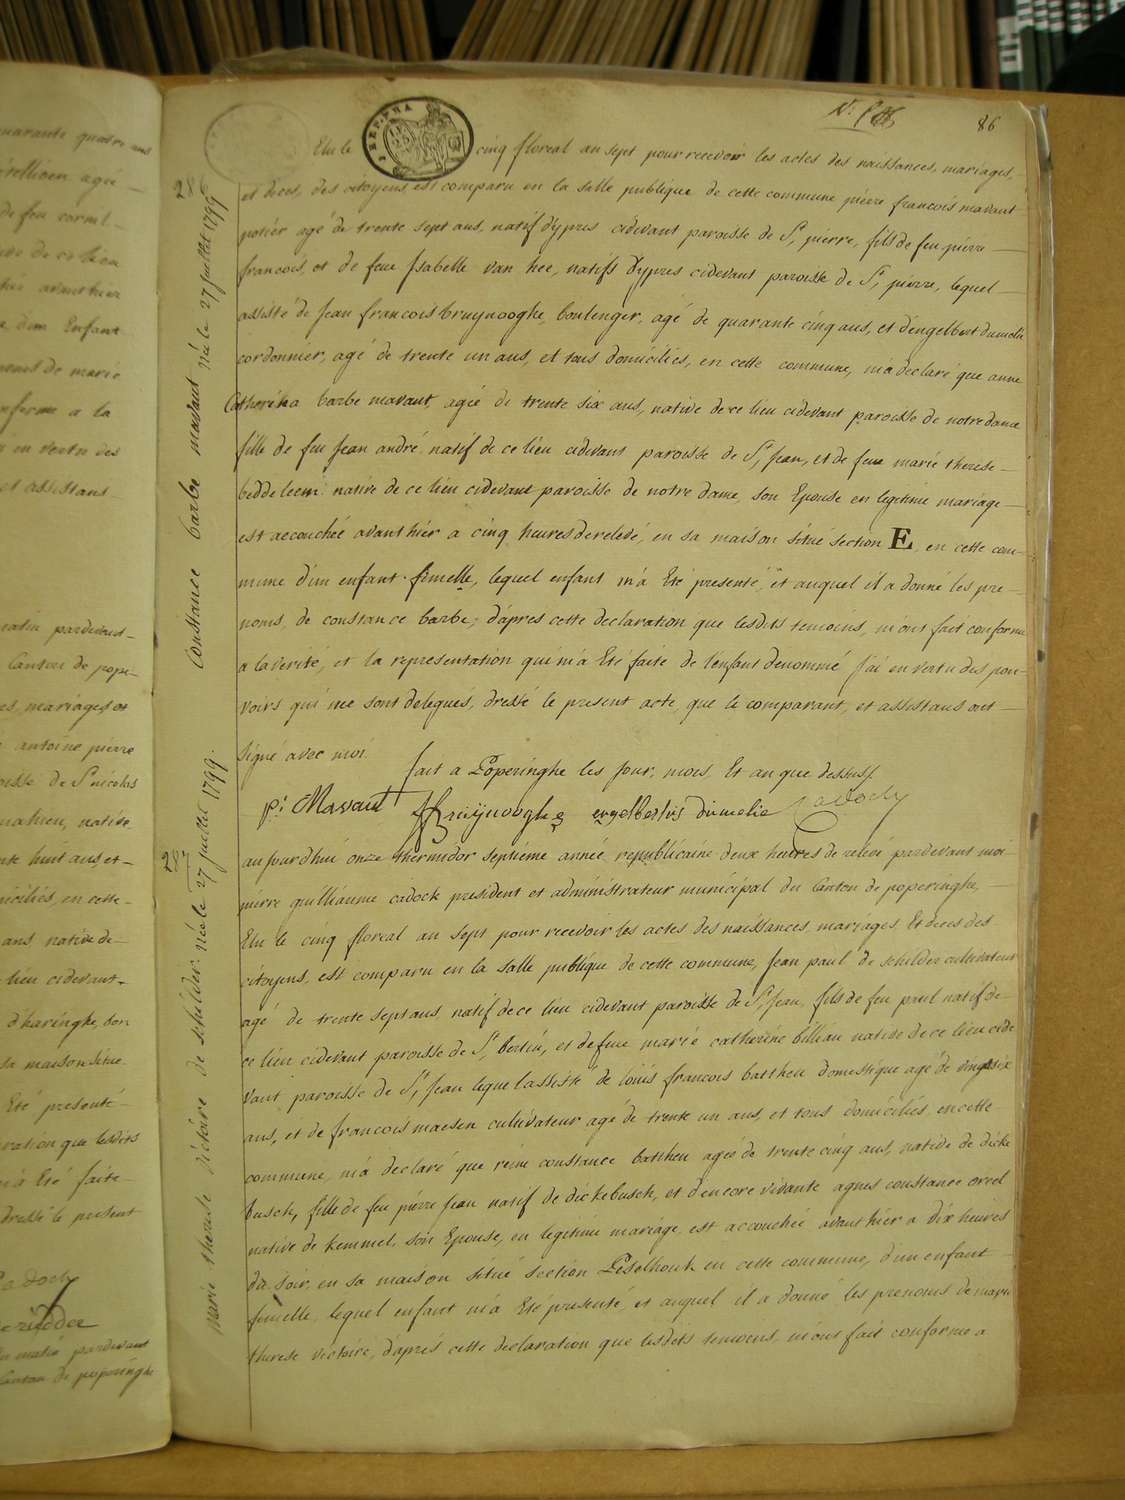 86
Elu le cinq floreal an sept pour recevoir les actes des naissances, mariages,
et deces, des citoyens est comparu en la salle publique de cette commune piérre francois mavaut
potiér agé de trente sept ans, natif d'ypres cidevant paroisse de St piérre, fils de feu piérre
francois, et de feue Isabelle van hee, natifs d'ypres cidevant paroisse de St piérre, lequel
assisté de Jean francois bruynooghe, boulenger, agé de quarante cinq ans, et d'engelbert dumelie
cordonniér, agé de trente un ans, et tous domiciliés, en cette commune, m'a declaré que anne
Catherina barbe mavaut, agée de trente six ans, native de ce lieu cidevant paroisse de notre dame
fille de feu Jean andré natif de ce lieu cidevant paroisse de St Jean, et de feue marie therese
beddeleem native de ce lieu cidevant paroisse de notre dame, son Epouse en legitime mariage
est accouchée avant hiér a cinq heures de relevé, en sa maison situé section E, en cette com-
mune d'un enfant fimelle, lequel enfant m'a Eté presenté, et auquel il a donné les pre-
noms, de constance barbe; d'apres cette declaration que lesdits temoins, m'ont fait conforme
a la verité, et la representation qui m'a Eté faite de l'enfant denommé J'ai en vertu des pou-
voirs qui me sont delegués, dressé le present acte, que le comparant, et assistans ont
signé avec moi.
fait a Poperinghe les Jour, mois, Et an que dessus
p: Mavaut J F Bruijnooghe engelbertus dumelie Cadock
287
constance barbe mavaut née le 27 juillet 1799
aujourd'hui onze thermidor septiéme année republicaine deux heures de relevé pardevant moi
piérre guilliaume cadock president et administrateur municipal du Canton de poperinghe,
Elu le cinq floreal an sept pour recevoir les actes des naissances, mariages, Et deces des
citoyens, est comparu en la salle publique de cette commune, Jean paul de schilder cultivateur
agé de trente sept ans, natif de ce lieu cidevant paroisse de St Jean, fils de feu paul natif de
ce lieu cidevant paroisse de St bertin, et de feue marie catherine billiau native de ce lieu cide
vant paroisse de St Jean lequel assisté de loüis francois battheu domestique agé de vingt six
ans, et de francois maesen cultivateur agé de trente un ans, et tous domiciliés en cette
commune, m'a declaré que reine constance battheu ageé de trente cinq ans, native de dicke
busch, fille de feu piérre Jean natif de dickebusch, et d'encore vivante agnes constance oreel
native de kemmel, son Epouse, en legitime mariage, est accouchée avant hier a dix heures
du soir, en sa maison situé section Peselhouk en cette commune, d'un enfant
fimelle, lequel enfant m'a Eté presenté, et auquel il a donné les prenoms de marie
therese victoire, d'aprés cette declaration que lesdits temoins, m'ont fait conforme a
marie therese victoire de schilder née le 27 juillet 1799